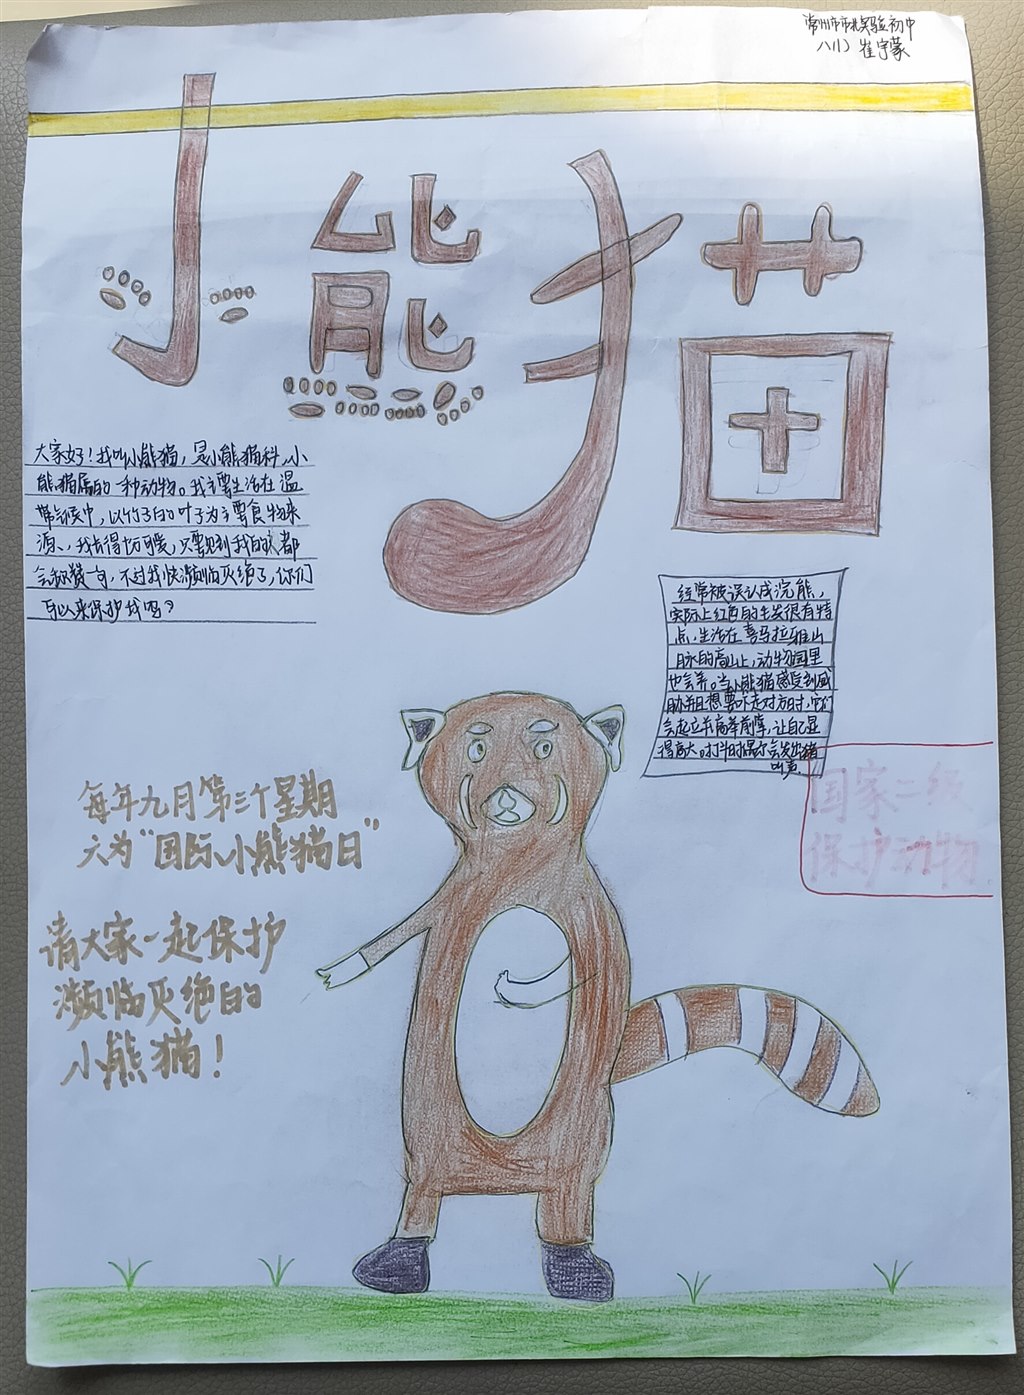 常州市市北实验初中
八(1) 崔宇蒙
小熊猫
大家好！我叫小熊猫，是小熊猫科、小
熊猫属的一种动物。我主要生活在温
带气候中，以竹子的叶子为主要食物来
源、，我长得十分可爱，只要见到我的人都
会称赞一句，不过我快濒临灭绝了，你们
可以来保护我吗？
经常被误认成浣熊，
实际上红色的毛发很有特
点，生活在喜马拉雅山
脉的高山上，动物园里
也会养。当小熊猫感受到威
胁并且想要吓走对方时，它们
会起立并高举前掌，让自己显
得高大。打斗时偶尔会发出猪
叫声
国家二级
保护动物
每年九月第三个星期
六为“国际小熊猫日”
请大家一起保护
濒临灭绝的
小熊猫！